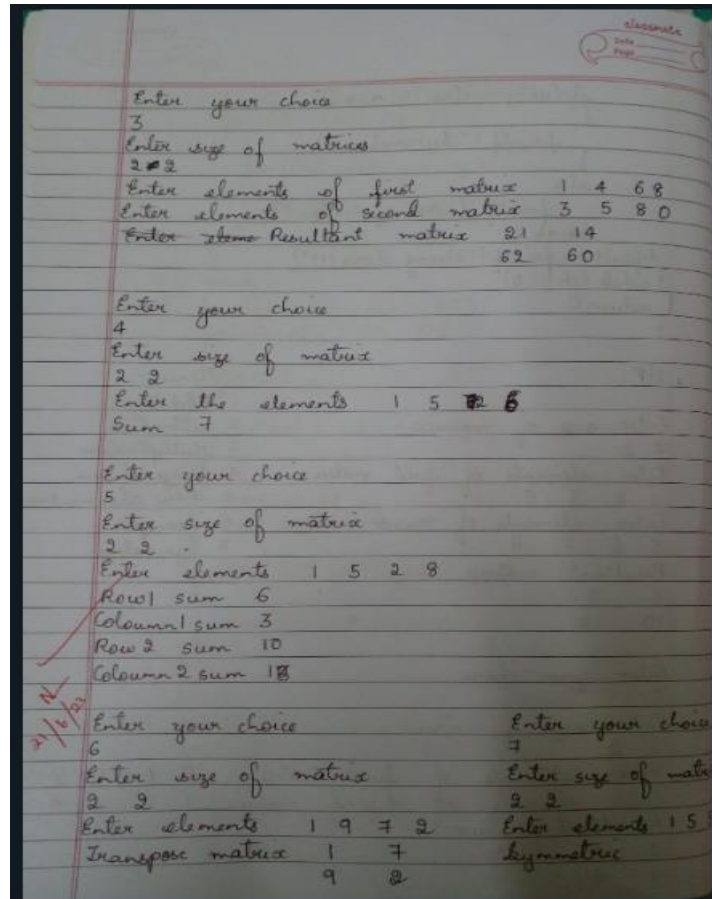 classmate
Date
Page
Enter your choice
3
Enter size of matrices
2 2
Enter elements of first matrix 1 4 6 8
Enter elements of second matrix 3 5 8 0
Resultant matrix 21 14
62 60
Enter your choice
4
Enter size of matrix
2 2
Enter the elements 1 5 2 6
Sum 7
Enter your choice
5
Enter size of matrix
2 2
Enter elements 1 5 2 8
Row1 sum 6
Coloumn1 sum 3
Row 2 sum 10
Coloumn 2 sum 13
21/6/23
Enter your choice
6
Enter size of matrix
2 2
Enter elements 1 9 7 2
Transpose matrix 1 7
9 2
Enter your choice
7
Enter size of mat
2 2
Enter elements 1 5
Symmetric